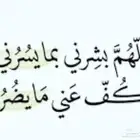 لّهُمَّ بشرني بما يسُرني
كُفّ عَني مَا يَضُرُ